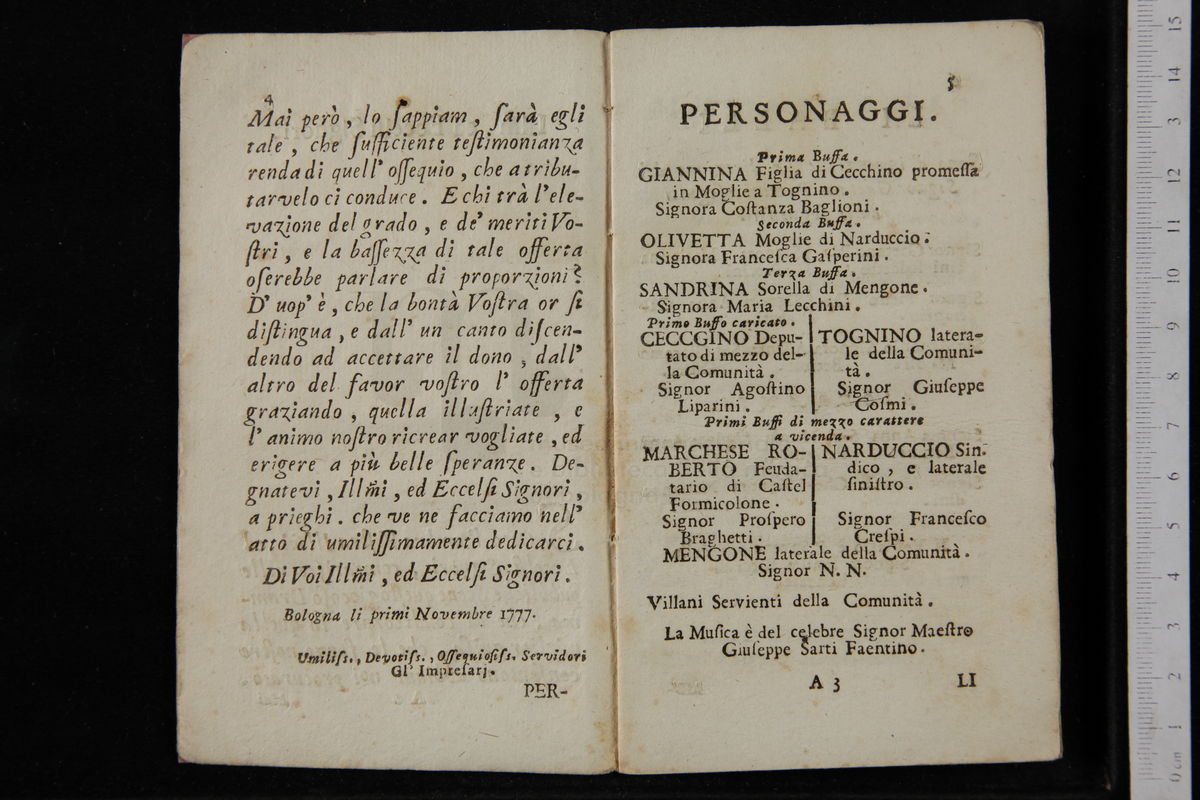 4
Mai però, lo ſappiam, ſarà egli
tale, che ſufficiente teſtimonianza
renda di quell' oſſequio, che a tribu-
tarvelo ci conduce. E chi trà l'ele-
vazione del grado, e de' meriti Vo-
ſtri, e la baſſezza di tale offerta
oſerebbe parlare di proporzioni?
D' uop' è, che la bontà Voſtra or ſi
diſtingua, e dall' un canto diſcen-
dendo ad accettare il dono, dall'
altro del favor voſtro l' offerta
graziando, quella illuſtriate, e
l' animo noſtro ricrear vogliate, ed
erigere a più belle ſperanze. De-
gnatevi, Illm̃i, ed Eccelſi Signori,
a prieghi. che ve ne facciamo nell'
atto di umiliſſimamente dedicarci.
Di Voi Illm̃i, ed Eccelſi Signori.
Bologna li primi Novembre 1777.
Umiliſs., Devotiſs., Oſſequioſiſs. Servidori
Gl' Impreſarj.
PER-
5
PERSONAGGI.
Prima Buffa.
GIANNINA Figlia di Cecchino promeſſa
in Moglie a Tognino.
Signora Coſtanza Baglioni.
Seconda Buffa.
OLIVETTA Moglie di Narduccio.
Signora Franceſca Gaſperini.
Terza Buffa.
SANDRINA Sorella di Mengone.
Signora Maria Lecchini.
Primo Buffo caricato.
CECCGINO Depu-
tato di mezzo del-
la Comunità.
Signor Agoſtino
Liparini.
TOGNINO latera-
le della Comuni-
tà.
Signor Giuſeppe
Coſmi.
Primi Buffi di mezzo carattere
a vicenda.
MARCHESE RO-
BERTO Feuda-
tario di Caſtel
Formicolone.
Signor Proſpero
Braghetti.
NARDUCCIO Sin-
dico, e laterale
ſiniſtro.
Signor Franceſco
Creſpi.
MENGONE laterale della Comunità.
Signor N. N.
Villani Servienti della Comunità.
La Muſica è del celebre Signor Maeſtro
Giuſeppe Sarti Faentino.
A 3
LI
0 cm
1
2
3
4
5
6
7
8
9
10
11
12
3
14
15